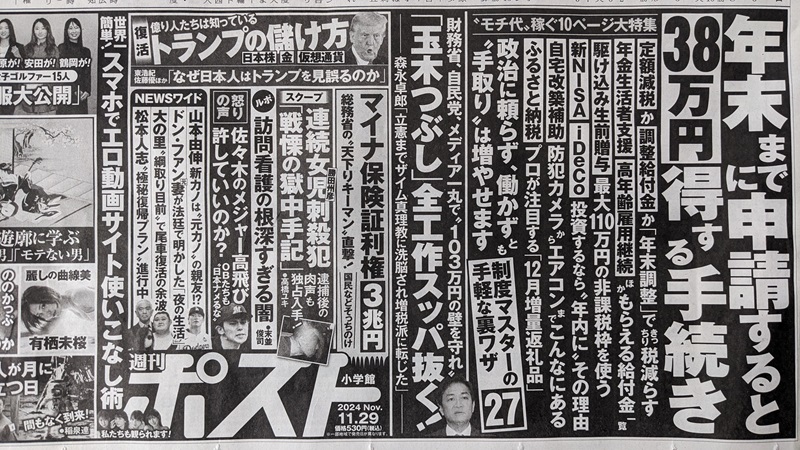 “モチ代”稼ぐ10ページ大特集
年末までに申請すると
38万円得する手続き
定額減税か調整給付金か「年末調整」できっちり税減らす
年金生活者支援 高年齢雇用継続ほかもらえる給付金一覧
駆け込み生前贈与 最大110万円の非課税枠を使う
新NISA iDeCo 投資するなら“年内に”その理由
自宅改築補助 防犯カメラからエアコンまでこんなにある
ふるさと納税 プロが注目する「12月増量返礼品」
政治に頼らず、働かずとも
“手取り”は増やせます
制度マスターの
手軽な裏ワザ
27
財務省、自民党、メディア一丸で“103万円の壁を守れ”
「玉木つぶし」全工作スッパ抜く!
森永卓郎「立憲までザイム真理教に洗脳され増税派に転じた」
復活
億り人たちは知っている
トランプの儲け方
日本株 金 仮想通貨
東浩紀
佐藤優ほか
「なぜ日本人はトランプを見誤るのか」
マイナ保険証利権3兆円
総務省の“天下りキーマン”直撃!
国民などそっちのけ
スクープ
勝田州彦
連続女児刺殺犯
戦慄の獄中手記
逮捕後の
肉声も
独占入手!
●高橋ユキ
ルポ
訪問看護の根深すぎる闇
●末並俊司
怒りの声
佐々木のメジャー高飛び
許していいのか?
OBたちも
「日本ナメるな」
NEWSワイド
山本由伸新カノは“元カノ”の親友!?
ドン・ファン“妻”が法廷で明かした「夜の生活」
大の里“綱取り目前”で尾車復活の余波
松本人志“極秘復帰プラン”進行中
週刊
ポスト
小学館
2024 Nov.
11.29
価格530円(税込)
世界一簡単!
スマホでエロ動画サイト使いこなし術
私たちも観られます!
原が! 安田が! 鶴岡が!
子ゴルファー15人
服大公開」
遊廓に学ぶ
」「モテない男」
麗しの曲線美
有栖未桜
ののかっぷ
人が月に
立つ日
間もなく到来!
●稲泉連